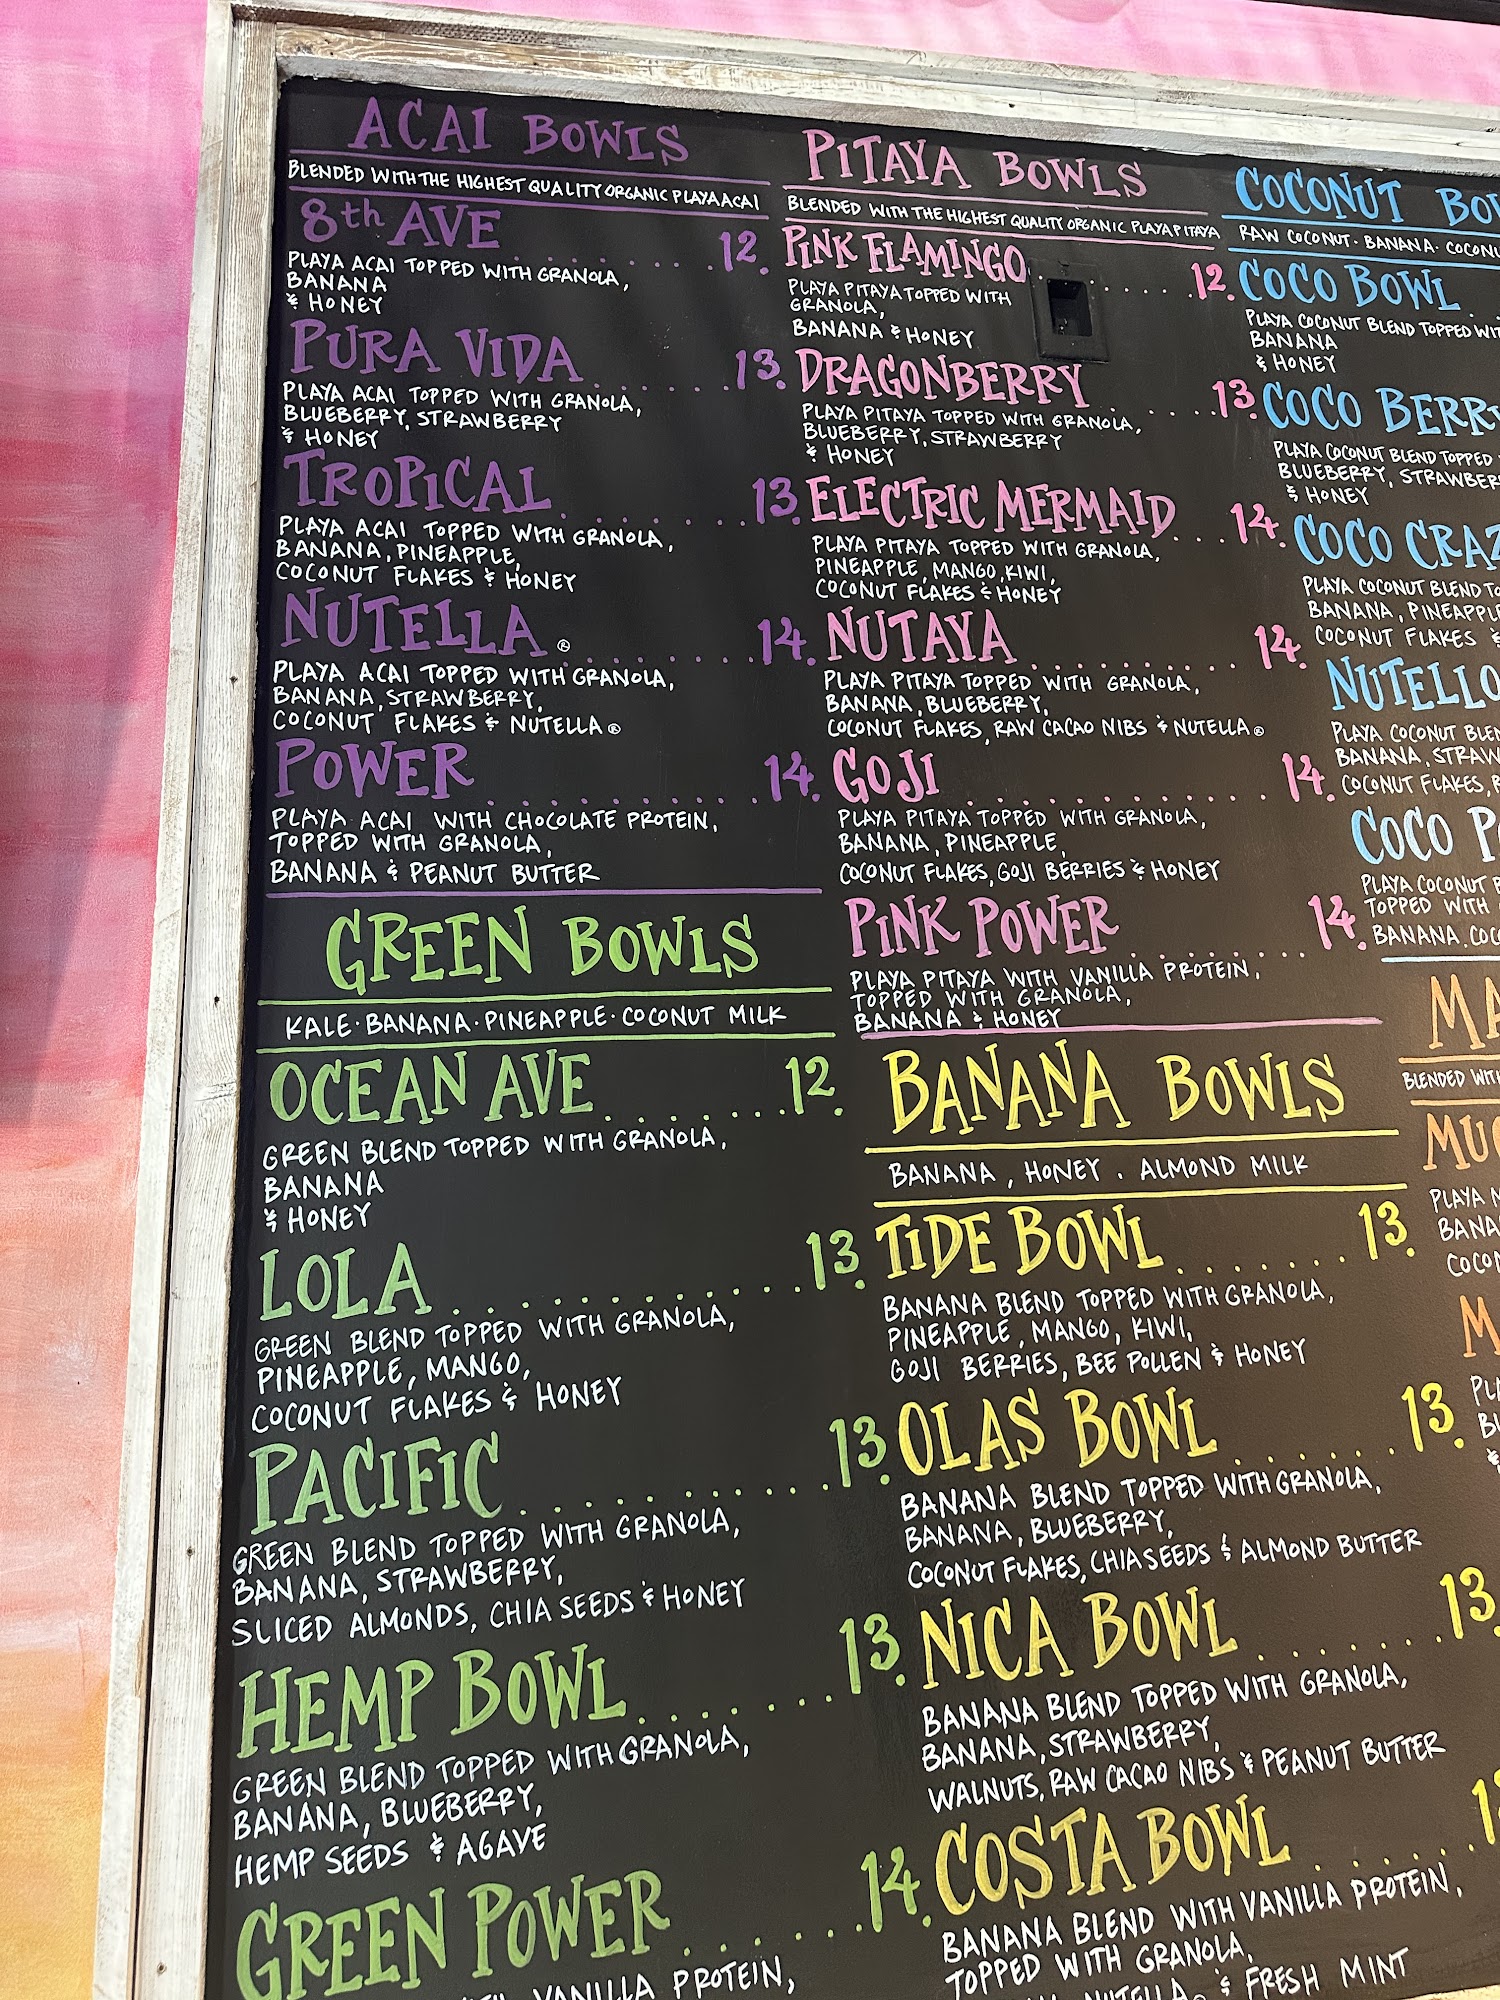 ACAI BOWLS
BLENDED WITH THE HIGHEST QUALITY ORGANIC PLAYA ACAI
8th AVE . . . . . . . . 12.
PLAYA ACAI TOPPED WITH GRANOLA,
BANANA
& HONEY
PURA VIDA . . . . . . . 13.
PLAYA ACAI TOPPED WITH GRANOLA,
BLUEBERRY, STRAWBERRY
& HONEY
TROPICAL . . . . . . . . 13.
PLAYA ACAI TOPPED WITH GRANOLA,
BANANA, PINEAPPLE,
COCONUT FLAKES & HONEY
NUTELLA ® . . . . . . . . 14.
PLAYA ACAI TOPPED WITH GRANOLA,
BANANA, STRAWBERRY,
COCONUT FLAKES & NUTELLA ®
POWER . . . . . . . . . . . 14.
PLAYA ACAI WITH CHOCOLATE PROTEIN,
TOPPED WITH GRANOLA,
BANANA & PEANUT BUTTER
GREEN BOWLS
KALE · BANANA · PINEAPPLE · COCONUT MILK
OCEAN AVE . . . . . . . . 12.
GREEN BLEND TOPPED WITH GRANOLA,
BANANA
& HONEY
LOLA . . . . . . . . . . . . 13.
GREEN BLEND TOPPED WITH GRANOLA,
PINEAPPLE, MANGO,
COCONUT FLAKES & HONEY
PACIFIC . . . . . . . . . . 13.
GREEN BLEND TOPPED WITH GRANOLA,
BANANA, STRAWBERRY,
SLICED ALMONDS, CHIA SEEDS & HONEY
HEMP BOWL . . . . . . . 13.
GREEN BLEND TOPPED WITH GRANOLA,
BANANA, BLUEBERRY,
HEMP SEEDS & AGAVE
GREEN POWER . . . . . . 14.
VANILLA PROTEIN,
PITAYA BOWLS
BLENDED WITH THE HIGHEST QUALITY ORGANIC PLAYA PITAYA
PINK FLAMINGO . . . . . 12.
PLAYA PITAYA TOPPED WITH
GRANOLA,
BANANA & HONEY
DRAGONBERRY . . . . . 13.
PLAYA PITAYA TOPPED WITH GRANOLA,
BLUEBERRY, STRAWBERRY
& HONEY
ELECTRIC MERMAID . . . 14.
PLAYA PITAYA TOPPED WITH GRANOLA,
PINEAPPLE, MANGO, KIWI,
COCONUT FLAKES & HONEY
NUTAYA . . . . . . . . . . 14.
PLAYA PITAYA TOPPED WITH GRANOLA,
BANANA, BLUEBERRY,
COCONUT FLAKES, RAW CACAO NIBS & NUTELLA ®
GOJI . . . . . . . . . . . . 14.
PLAYA PITAYA TOPPED WITH GRANOLA,
BANANA, PINEAPPLE,
COCONUT FLAKES, GOJI BERRIES & HONEY
PINK POWER . . . . . . . 14.
PLAYA PITAYA WITH VANILLA PROTEIN,
TOPPED WITH GRANOLA,
BANANA & HONEY
BANANA BOWLS
BANANA, HONEY . ALMOND MILK
TIDE BOWL . . . . . . . . 13.
BANANA BLEND TOPPED WITH GRANOLA,
PINEAPPLE, MANGO, KIWI,
GOJI BERRIES, BEE POLLEN & HONEY
OLAS BOWL . . . . . . . 13.
BANANA BLEND TOPPED WITH GRANOLA,
BANANA, BLUEBERRY,
COCONUT FLAKES, CHIA SEEDS & ALMOND BUTTER
NICA BOWL . . . . . . . . 13.
BANANA BLEND TOPPED WITH GRANOLA,
BANANA, STRAWBERRY,
WALNUTS, RAW CACAO NIBS & PEANUT BUTTER
COSTA BOWL . . . . . .
BANANA BLEND WITH VANILLA PROTEIN,
TOPPED WITH GRANOLA,
NUTELLA ® & FRESH MINT
COCONUT
RAW COCONUT · BANANA ·
COCO BOWL .
PLAYA COCONUT BLEND TOPPED
BANANA
& HONEY
COCO
PLAYA COCONUT BLEND TOPPED
BLUEBERRY,
& HONEY
COCO
PLAYA COCONUT BLEND
BANANA,
COCONUT FLAKES &
PLAYA COCONUT
BANANA,
COCONUT FLAKES,
COCO
PLAYA COCONUT
TOPPED WITH
BANANA,
BLENDED
PLAYA